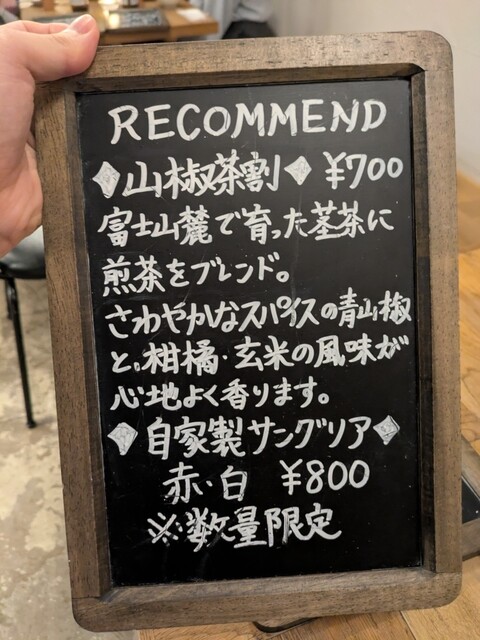 RECOMMEND
◆山椒茶割◆ ¥700
富士山麓で育った茎茶に
煎茶をブレンド。
さわやかなスパイスの青山椒
と、柑橘・玄米の風味が
心地よく香ります。
◆自家製サングリア◆
赤・白 ¥800
※数量限定